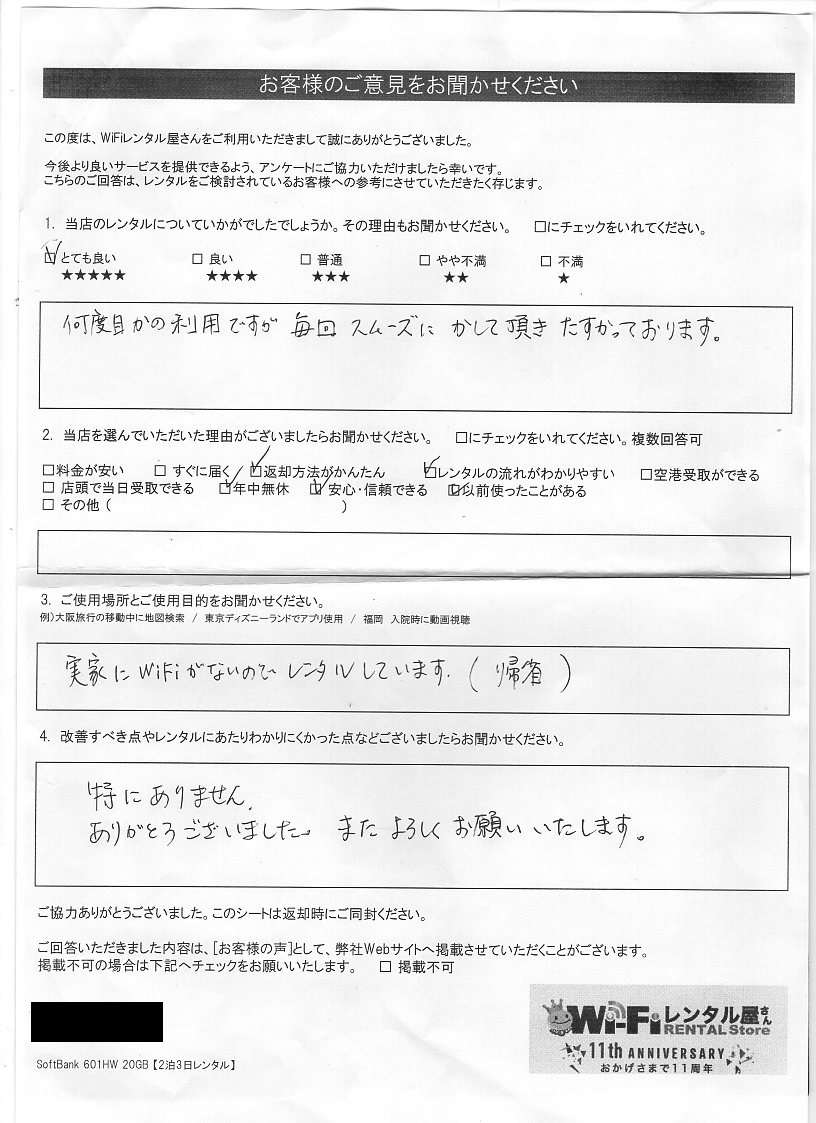 お客様のご意見をお聞かせください
この度は、WiFiレンタル屋さんをご利用いただきまして誠にありがとうございました。
今後より良いサービスを提供できるよう、アンケートにご協力いただけましたら幸いです。
こちらのご回答は、レンタルをご検討されているお客様への参考にさせていただきたく存じます。
1. 当店のレンタルについていかがでしたでしょうか。その理由もお聞かせください。 □にチェックをいれてください。
☑とても良い □ 良い □ 普通 □ やや不満 □ 不満
★★★★★ ★★★★ ★★★ ★★ ★
何度目かの利用ですが 毎回 スムーズに かして頂き たすかっております。
2. 当店を選んでいただいた理由がございましたらお聞かせください。 □にチェックをいれてください。複数回答可
□料金が安い □ すぐに届く ☑返却方法がかんたん ☑レンタルの流れがわかりやすい □空港受取ができる
□ 店頭で当日受取できる ☑年中無休 ☑ 安心・信頼できる ☑以前使ったことがある
□ その他 ( )
3. ご使用場所とご使用目的をお聞かせください。
例)大阪旅行の移動中に地図検索 / 東京ディズニーランドでアプリ使用 / 福岡 入院時に動画視聴
実家に WiFiがないので レンタルしています. (帰省)
4. 改善すべき点やレンタルにあたりわかりにくかった点などございましたらお聞かせください。
特にありません.
ありがとうございました。 また よろしく お願い いたします。
ご協力ありがとうございました。このシートは返却時にご同封ください。
ご回答いただきました内容は、[お客様の声]として、弊社Webサイトへ掲載させていただくことがございます。
掲載不可の場合は下記へチェックをお願いいたします。 □ 掲載不可
Wi-Fiレンタル屋さん
RENTAL Store
11th ANNIVERSARY
おかげさまで11周年
SoftBank 601HW 20GB【2泊3日レンタル】